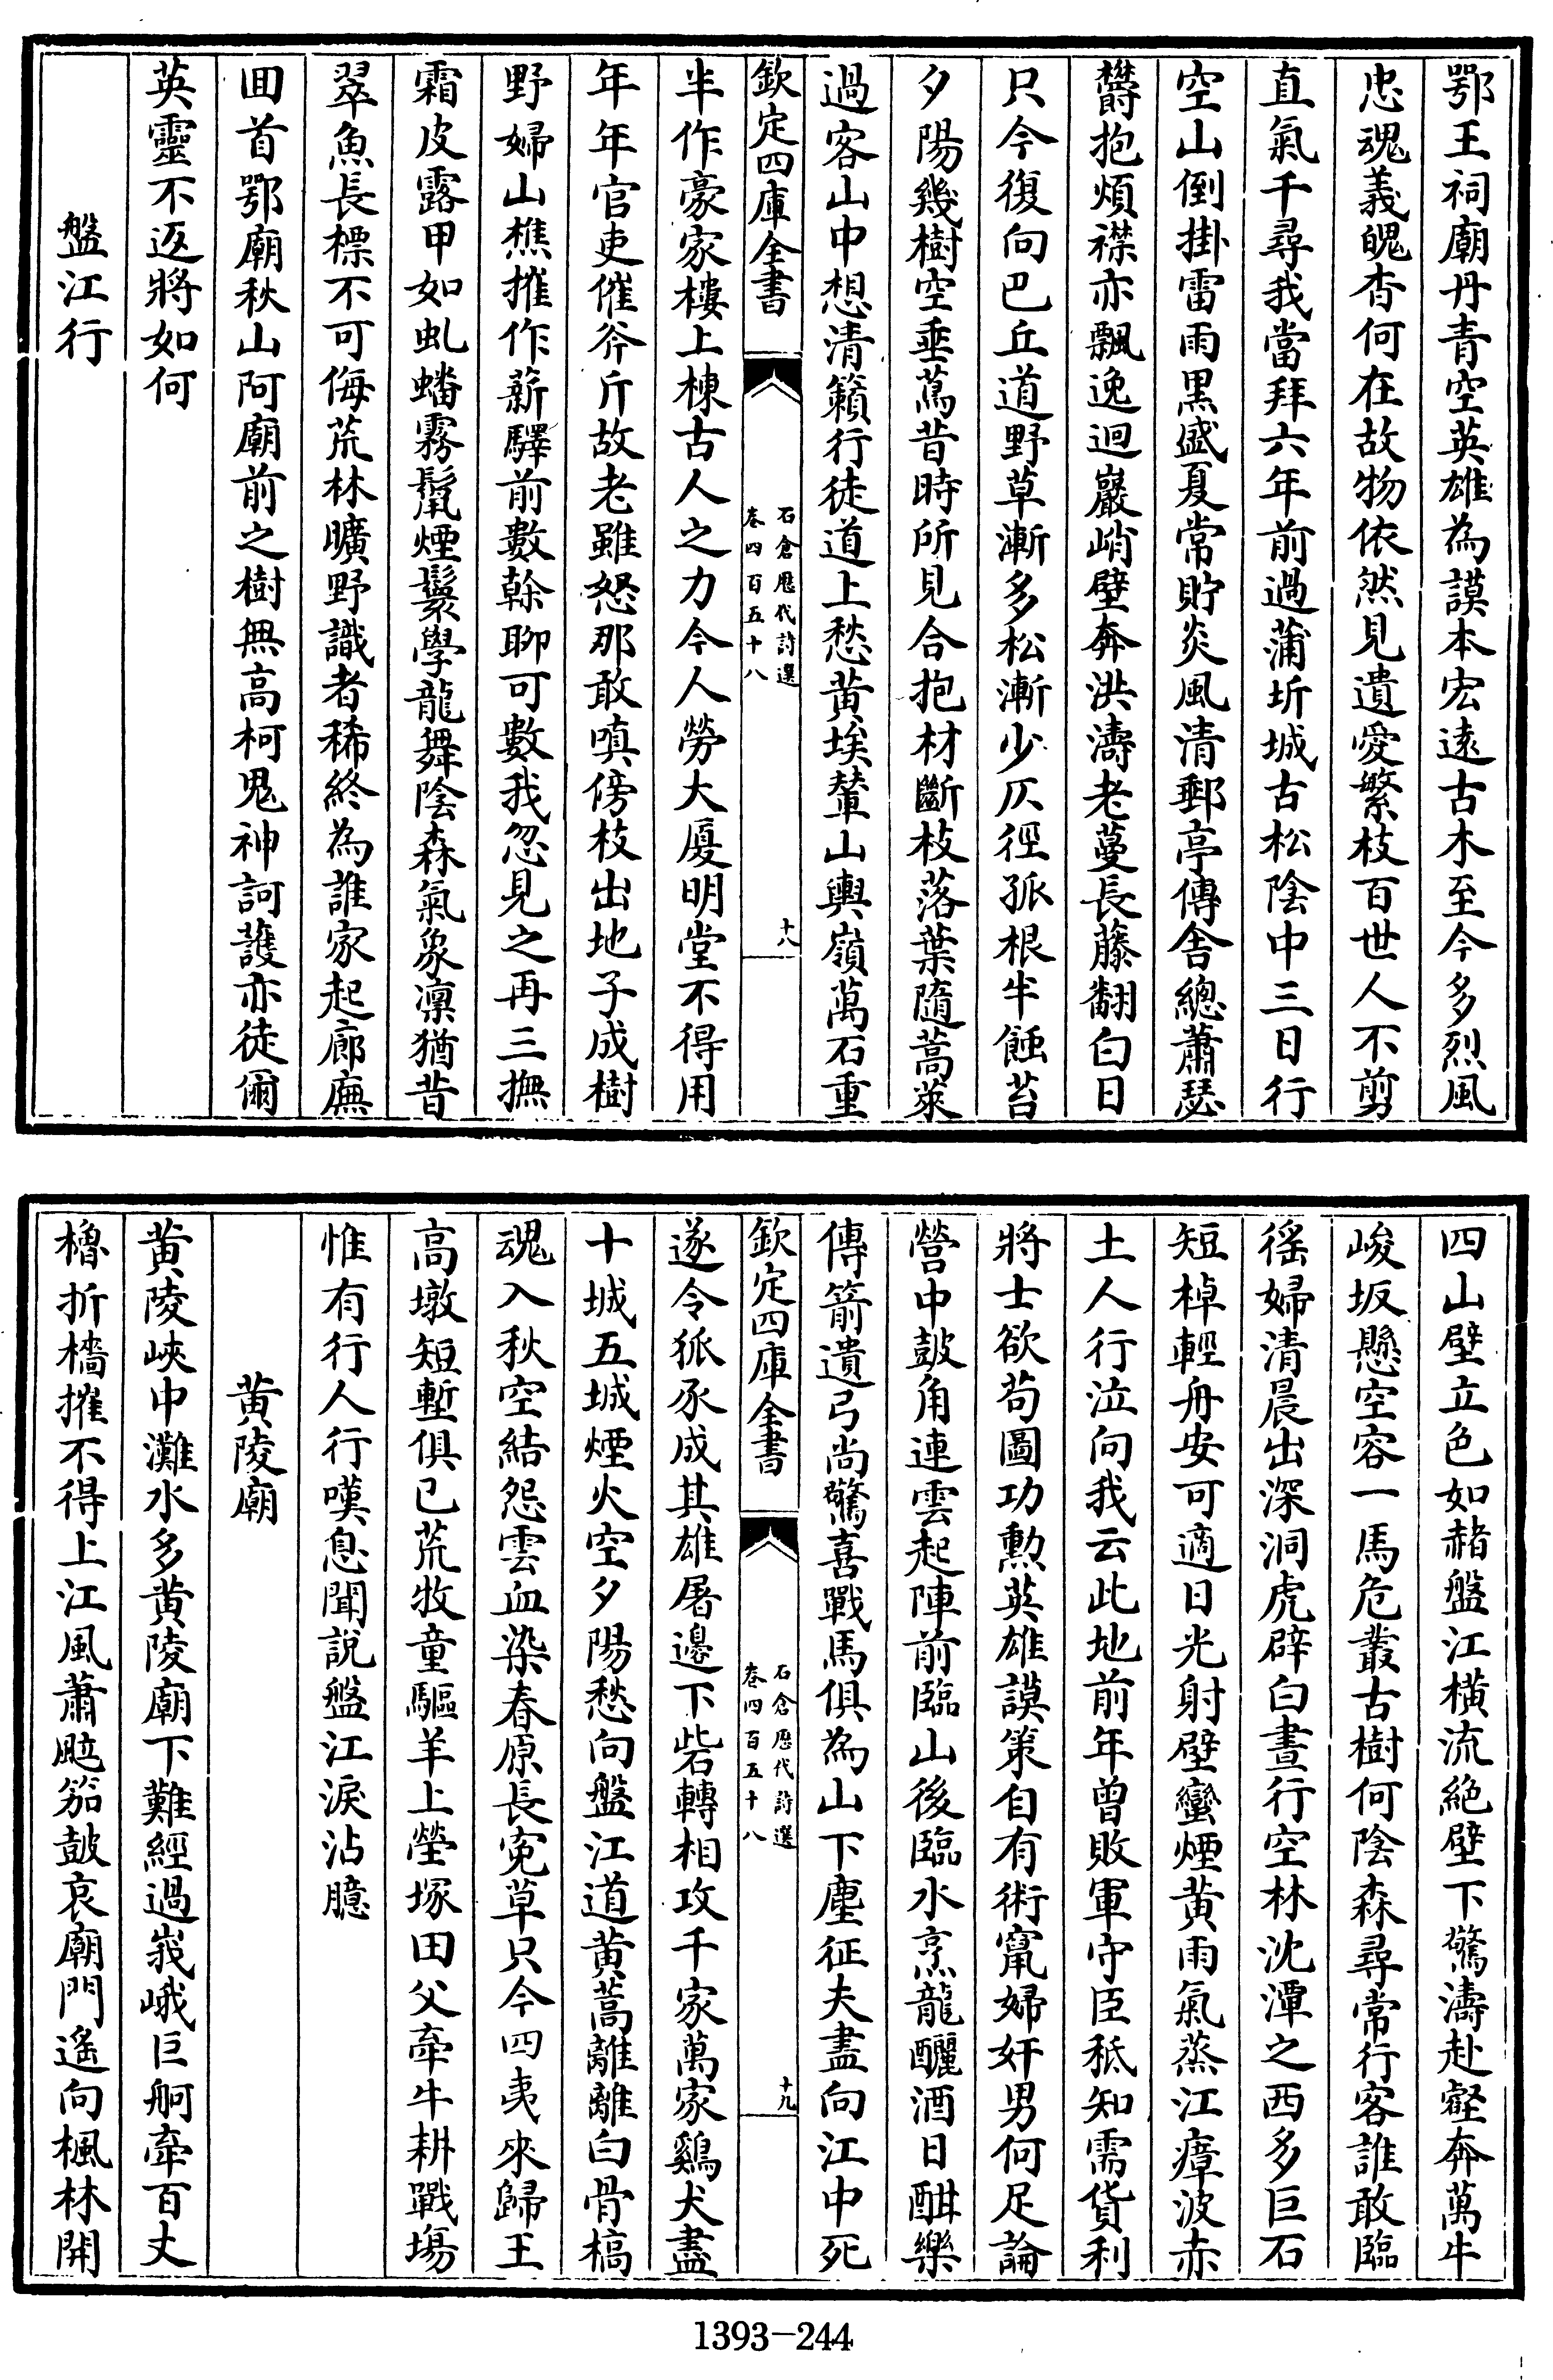 鄂王祠廟丹青空英雄為謨本宏遠古木至今多烈風
忠魂義魄杳何在故物依然見遺愛繁枝百世人不剪
直氣千尋我當拜六年前過蒲圻城古松陰中三日行
空山倒掛雷雨黑盛夏常貯炎風清郵亭傳舍總蕭瑟
欝抱煩襟亦飄逸迴巖峭壁奔洪濤老蔓長藤翻白日
只今復向巴丘道野草漸多松漸少仄徑孤根半蝕苔
夕陽幾樹空垂蔦昔時所見合抱材斷枝落葉隨蒿萊
過客山中想清籟行徒道上愁黄埃輦山輿嶺萬石重
欽定四庫全書
石倉歷代詩選
卷四百五十八
十八
半作豪家樓上棟古人之力今人勞大厦明堂不得用
年年官吏催斧斤故老雖怒那敢嗔傍枝出地子成樹
野婦山樵摧作薪驛前數榦聊可數我忽見之再三撫
霜皮露甲如虬蟠霧鬛煙鬟學龍舞陰森氣象凛猶昔
翠魚長標不可侮荒林曠野識者稀終為誰家起廊廡
回首鄂廟秋山阿廟前之樹無高柯鬼神訶護亦徒爾
英靈不返將如何
盤江行
四山壁立色如赭盤江橫流絶壁下驚濤赴壑奔萬牛
峻坂懸空容一馬危叢古樹何陰森尋常行客誰敢臨
徭婦清晨出深洞虎辟白晝行空林沈潭之西多巨石
短棹輕舟安可適日光射壁蠻煙黄雨氣蒸江瘴波赤
土人行泣向我云此地前年曾敗軍守臣秪知需貨利
將士欲苟圖功勲英雄謨策自有術竄婦奸男何足論
營中鼓角連雲起陣前臨山後臨水烹龍釃酒日酣樂
傳箭遺弓尚驚喜戰馬俱為山下塵征夫盡向江中死
欽定四庫全書
石倉歷代詩選
卷四百五十八
十九
遂令狐豕成其雄屠邊下砦轉相攻千家萬家鷄犬盡
十城五城煙火空夕陽愁向盤江道黄蒿離離白骨槁
魂入秋空結怨雲血染春原長寃草只今四夷來歸王
高墩短塹俱已荒牧童驅羊上塋塚田父牽牛耕戰塲
惟有行人行嘆息聞說盤江淚沾臆
黄陵廟
黄陵峽中灘水多黄陵廟下難經過峩峨巨舸牽百丈
櫓折檣摧不得上江風蕭颭笳鼓哀廟門遙向楓林開
1393-244